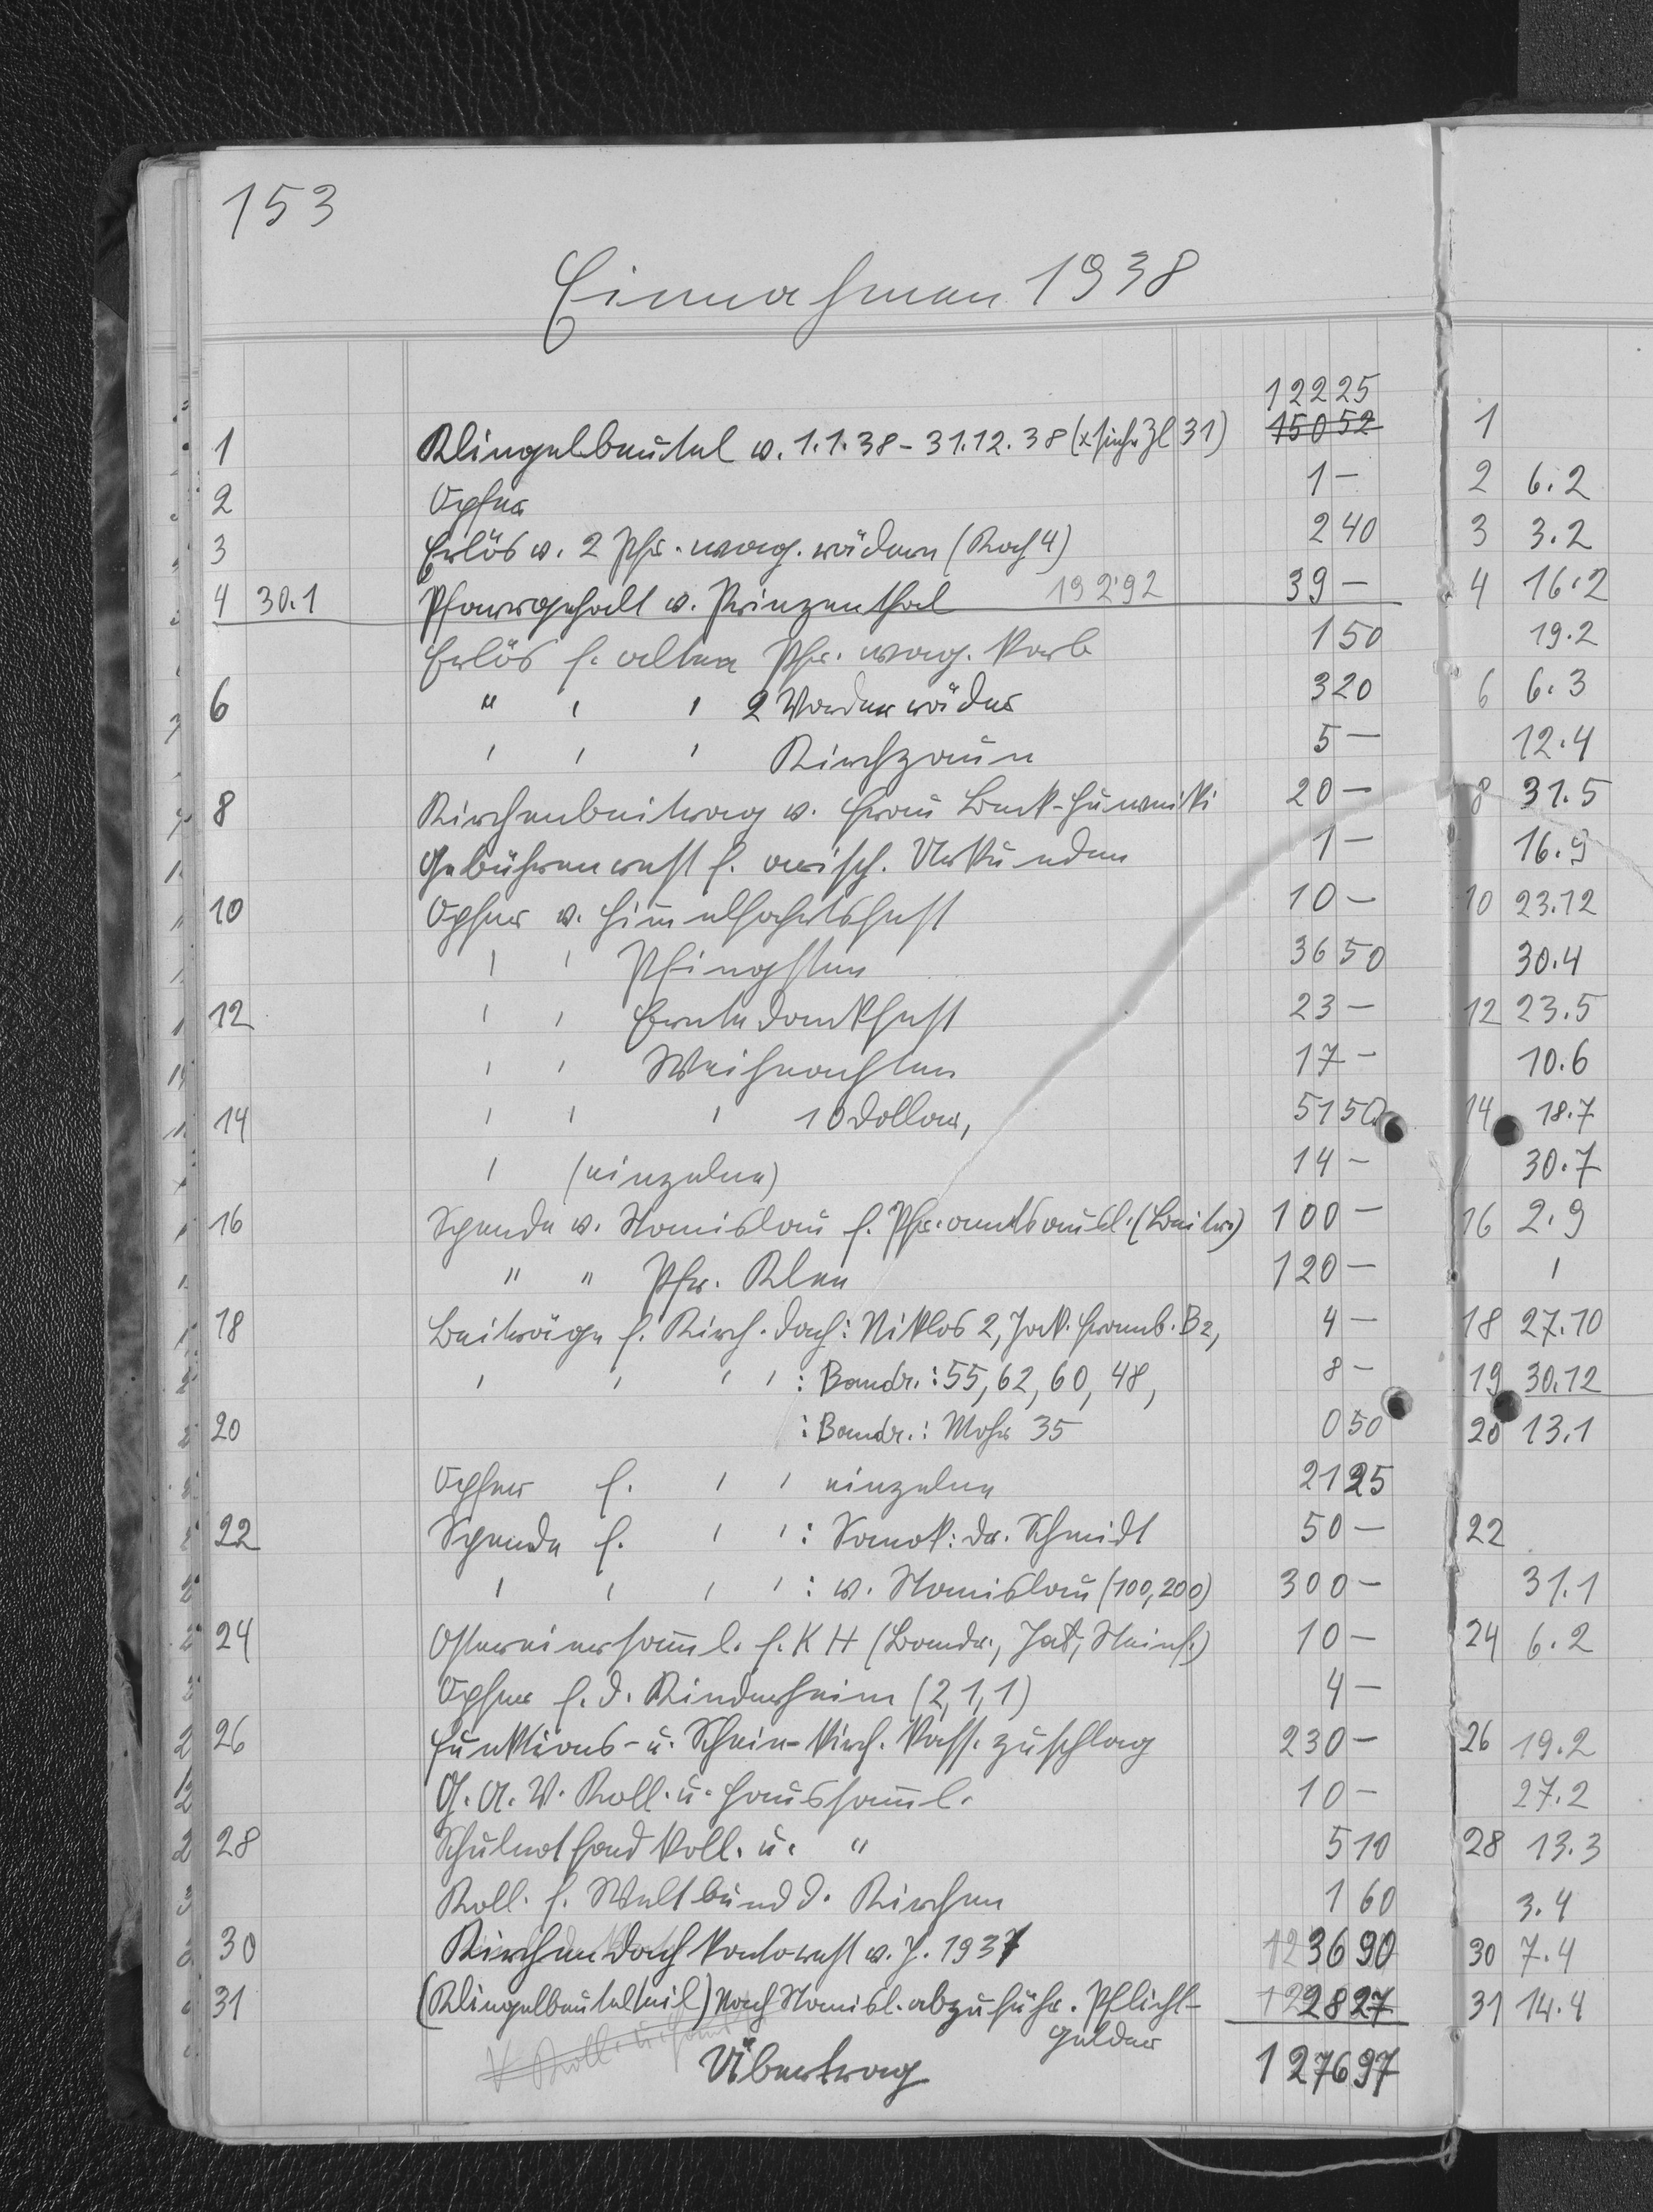 153
Einnahmen 1938
122 25
1 Klingelbeutel v. 1.1.38 - 31.12.38 (x siehe Zl 31) 150 52 1
2 Opfer 1 - 2 6.2
3 Erlös v. 2 Pfr. wag. rädern (Koch 4) 2 40 3 3.2
4 30.1 Pfarrgehalt v. Prinzenthal 192'92 39 - 4 16.2
Erlös f. alten Pfr. wag. Korb 1 50 19.2
6 " ' ' 2 Vorderräder 3 20 6 6.3
' ' ' Kirchzaun 5 - 12.4
8 Kirchenbeitrag v. Frau Beck- 20 - 8 31.5
Gebührenrest f. arisch. Urkunden 1 - 16.9
10 Opfer v. Himmelfahrtsfest 10 - 10 23.12
' ' Pfingsten 36 50 30.4
12 ' ' Erntedankfest 23 - 12 23.5
' ' Weihnachten 17 - 10.6
14 ' ' ' 10 Dollar, 51 50 14 18.7
' (einzelne) 14 - 30.7
16 Spende v. Stanislau f. Pfr. amtsausl. (Beitr.) 100 - 16 2.9
" " Pfr. Klee 120 - '
18 Beiträge f. Kirch. dach: Niklos 2, Jak. Framb. B2, 4 - 18 27.10
' ' ' ' : Bandr.: 55, 62, 60, 48, 8 - 19 30.12
20 : Bandr.: Mohr 35 0 50 20 13.1
Opfer f. ' ' einzelne 21 25
22 Spende f. ' ' : Sanok: Dr. Schmidt 50 - 22
' ' ' ' : v. Stanislau (100, 200) 300 - 31.1
24 Ostereiersamml. f. K H (Bandr., Jat, Steinf.) 10 - 24 6.2
Opfer f. d. Kinderheim (2, 1, 1) 4 -
26 Funktions- u. Schein- Kirch. Kass. zuschlag 230 - 26 19.2
G. A. V. Koll. u. Haussamml. 10 - 27.2
28 Schulnotfond Koll. u. " 5 10 28 13.3
Koll. f. Weltbund d. Kirchen 1 60 3.4
30 Kirchendach Kontorest v. J. 1937 36 90 30 7.4
31 (Klingelbeutelteil) Nach Stanisl. abzuführ. Pflicht- 28 27 31 14.4
gelder
Übertrag 1276 97